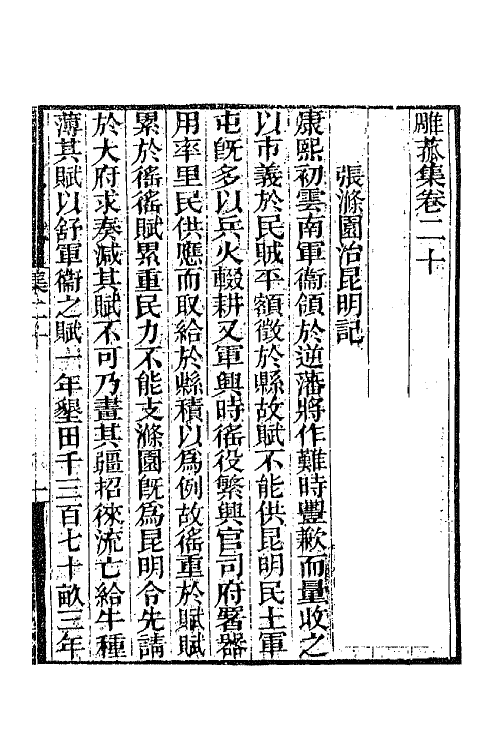 雕菰集卷二十
張滌園治昆明記
康熙初雲南軍衞領於逆藩將作難時豐歉而量收之
以市義於民賊平額徵於縣故賦不能供昆明民土軍
屯旣多以兵火輟耕又軍興時徭役繁興官司府署器
用率里民供應而取給於縣積以爲例故徭重於賦賦
累於徭徭賦累重民力不能支滌園旣爲昆明令先請
於大府求奏減其賦不可乃畫其疆招徠流亡給牛種
薄其賦以舒軍衞之賦一年墾田千三百七十畝三年
集二十
一